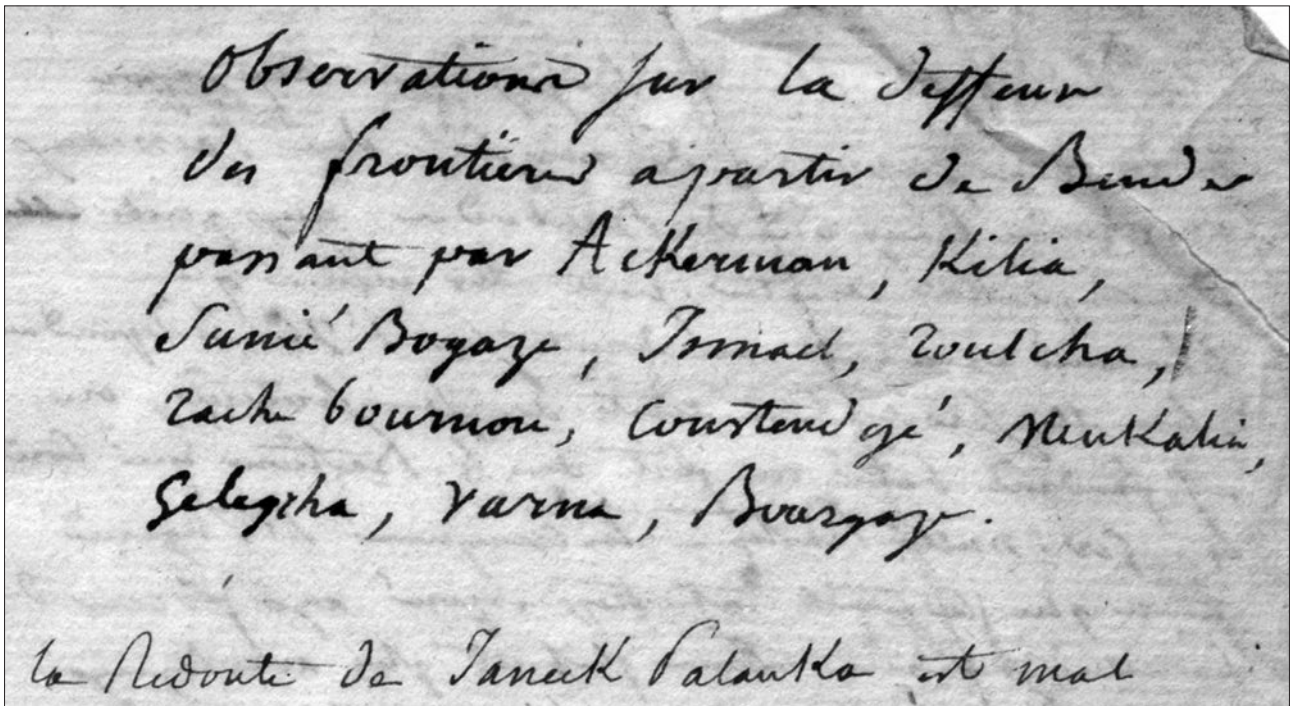 Observations sur la deffense
des frontieres apartir de Bender
passant par Ackerman, Kilia,
Sunié Bogaze, Ismael, Toulcha,
Tache bournou, Coustendgé, Menkalia,
Gelegrha, Varna, Bourgaze.
la Redoute de Janeck Palanka est mal